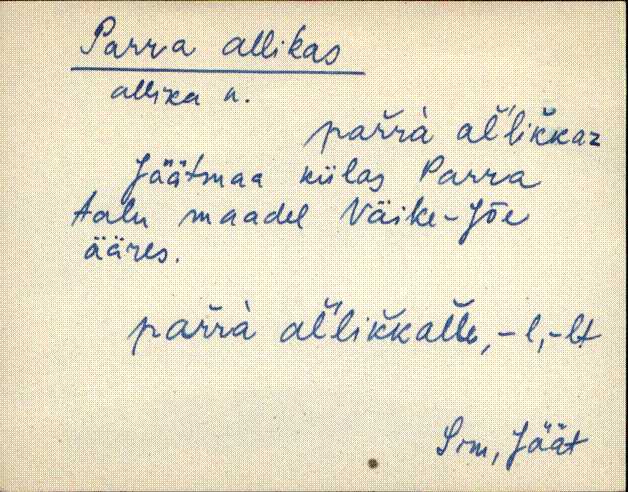 Parra allikas
allika n.
pař̀rà al̆'likkaz
Jäätmaa külas Parra
talu maadel Väike-Jõe
ääres.
pařrà al̆'likkallę, -l, -lt
Srm, Jäät